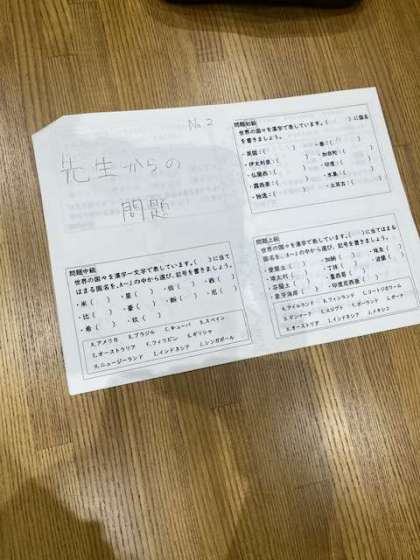 No.2
先生からの
問題
問題初級
世界の国々を漢字で表しています。( )に国名
を書きましょう。
・英国:( )
・伊太利亜:( )
・仏蘭西:( ) ・印度:( )
・露西亜:( )
・独逸:( )
問題中級
世界の国々を漢字一文字で表しています。( )に当て
はまる国名を、A~Jの中から選び、記号を書きましょう。
・米( ) ・星( ) ・伯( ) ・西( )
・比( ) ・豪( )
・希( )
A.アメリカ B.ブラジル C.キューバ D.スペイン
E.オーストラリア F.フィリピン G.ギリシャ
H.ニュージーランド I.インドネシア J.シンガポール
問題上級
世界の国々を漢字で表しています。( )に当てはまる
国名を、A~Jの中から選び、記号を書きましょう。
・愛蘭土( )
・埃太利( ) ・丁抹( ) ・波蘭( )
・芬蘭土( ) ・墨西哥( )
・象牙海岸( ) ・印度尼西亜( )
A.アイルランド B.フィンランド C.コートジボワール
D.デンマーク E.エジプト F.ポーランド G.ガーナ
H.オーストリア I.インドネシア J.メキシコ